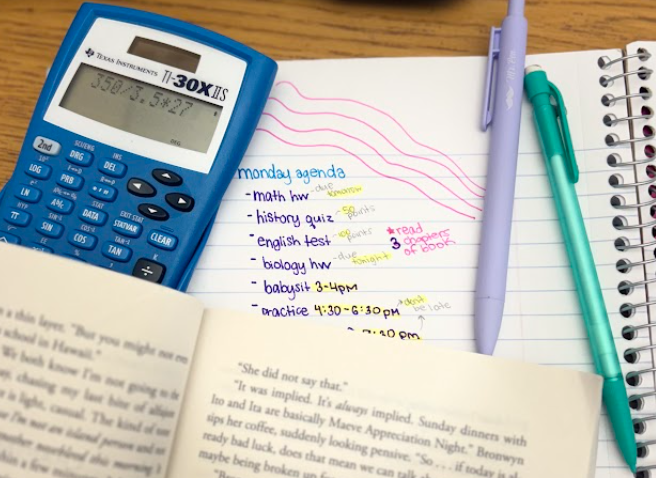 TEXAS INSTRUMENTS
TI-30X IIS
350/3.5*27
DEG
2nd
DRG
DEL
LOG
PRB
LN
DATA
STATVAR
EXIT STAT
CLEAR
π
SIN
COS
TAN
÷
monday agenda
- math hw - due tomorrow
- history quiz - 50 points
- english test - points
- biology hw - due tonight
- babysit 3-4pm
- practice 4:30-6:30pm *don't be late
7:30 pm
*read
3 chapters
of book
a thin layer. "But you might not
school in Hawaii."
We both know I'm not going to
chasing my last bite of
is light, casual. The kind of
I'm not an island person and
mother mumbled this morning
within a few
"She did not say that."
"It was implied. It's always implied. Sunday dinners with
Ito and Ita are basically Maeve Appreciation Night." Bronwyn
sips her coffee, suddenly looking pensive. "So . . . if today is
ready bad luck, does that mean we can talk
maybe being broken up